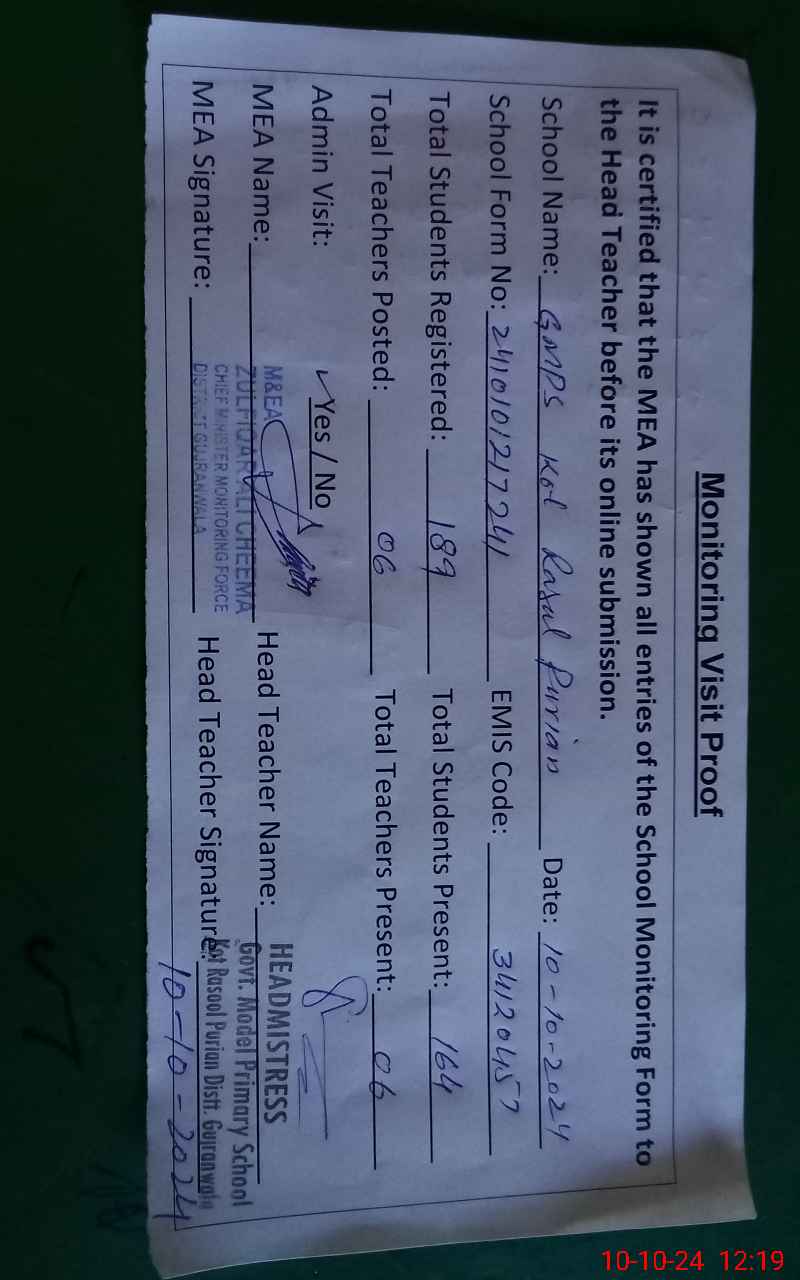 Monitoring Visit Proof
It is certified that the MEA has shown all entries of the School Monitoring Form to
the Head Teacher before its online submission.
School Name: GMPS Kot Rasul Purian Date: 10-10-2024
School Form No: 2410101217241 EMIS Code: 34120457
Total Students Registered: 189 Total Students Present: 164
Total Teachers Posted: 06 Total Teachers Present: 06
Admin Visit: ✓Yes / No
MEA Name: Head Teacher Name:
MEA Signature: Head Teacher Signature:
M&EA
ZULFIQAR ALI CHEEMA
CHIEF MINISTER MONITORING FORCE
DISTRICT GUJRANWALA
HEADMISTRESS
Govt. Model Primary School
Kot Rasool Purian Distt. Gujranwala
10-10-2024
10-10-24 12:19